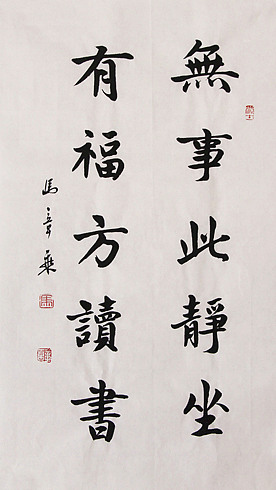 無事此靜坐
有福方讀書
馬章乘